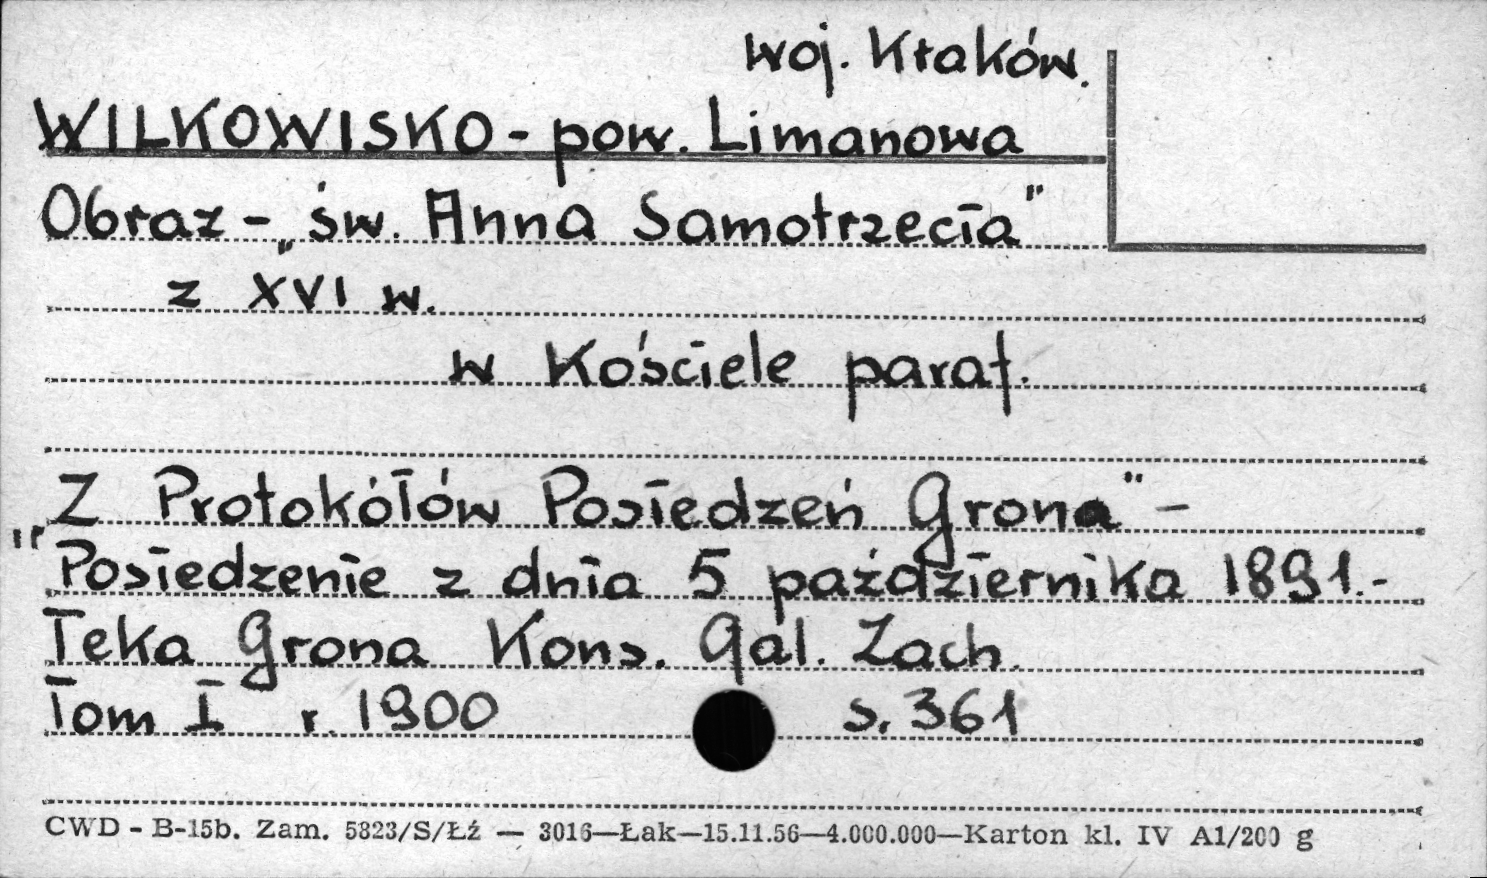 woj. Kraków.
WILKOWISKO - pow. Limanowa
Obraz - „św. Anna Samotrzecia"
z XVI w.
w Kościele paraf.
„Z Protokółów Posiedzeń Grona" -
Posiedzenie z dnia 5 października 1891.-
Teka Grona Kons. Gal. Zach.
Tom I r. 1900 s. 361
CWD - B-15b. Zam. 5823/S/Łź — 3016—Łak—15.11.56—4.000.000—Karton kl. IV A1/200 g